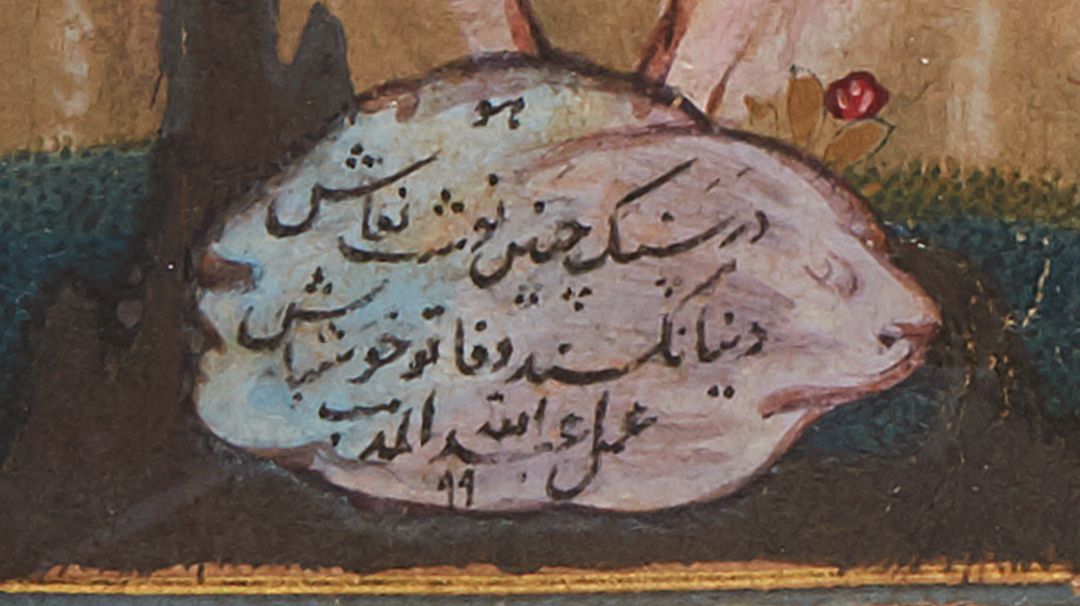 هو
در سنگ چنین نوشت نقاش
دنیا نکند وفا تو خوش باش
عمل عبد الله المذنب
۹۹